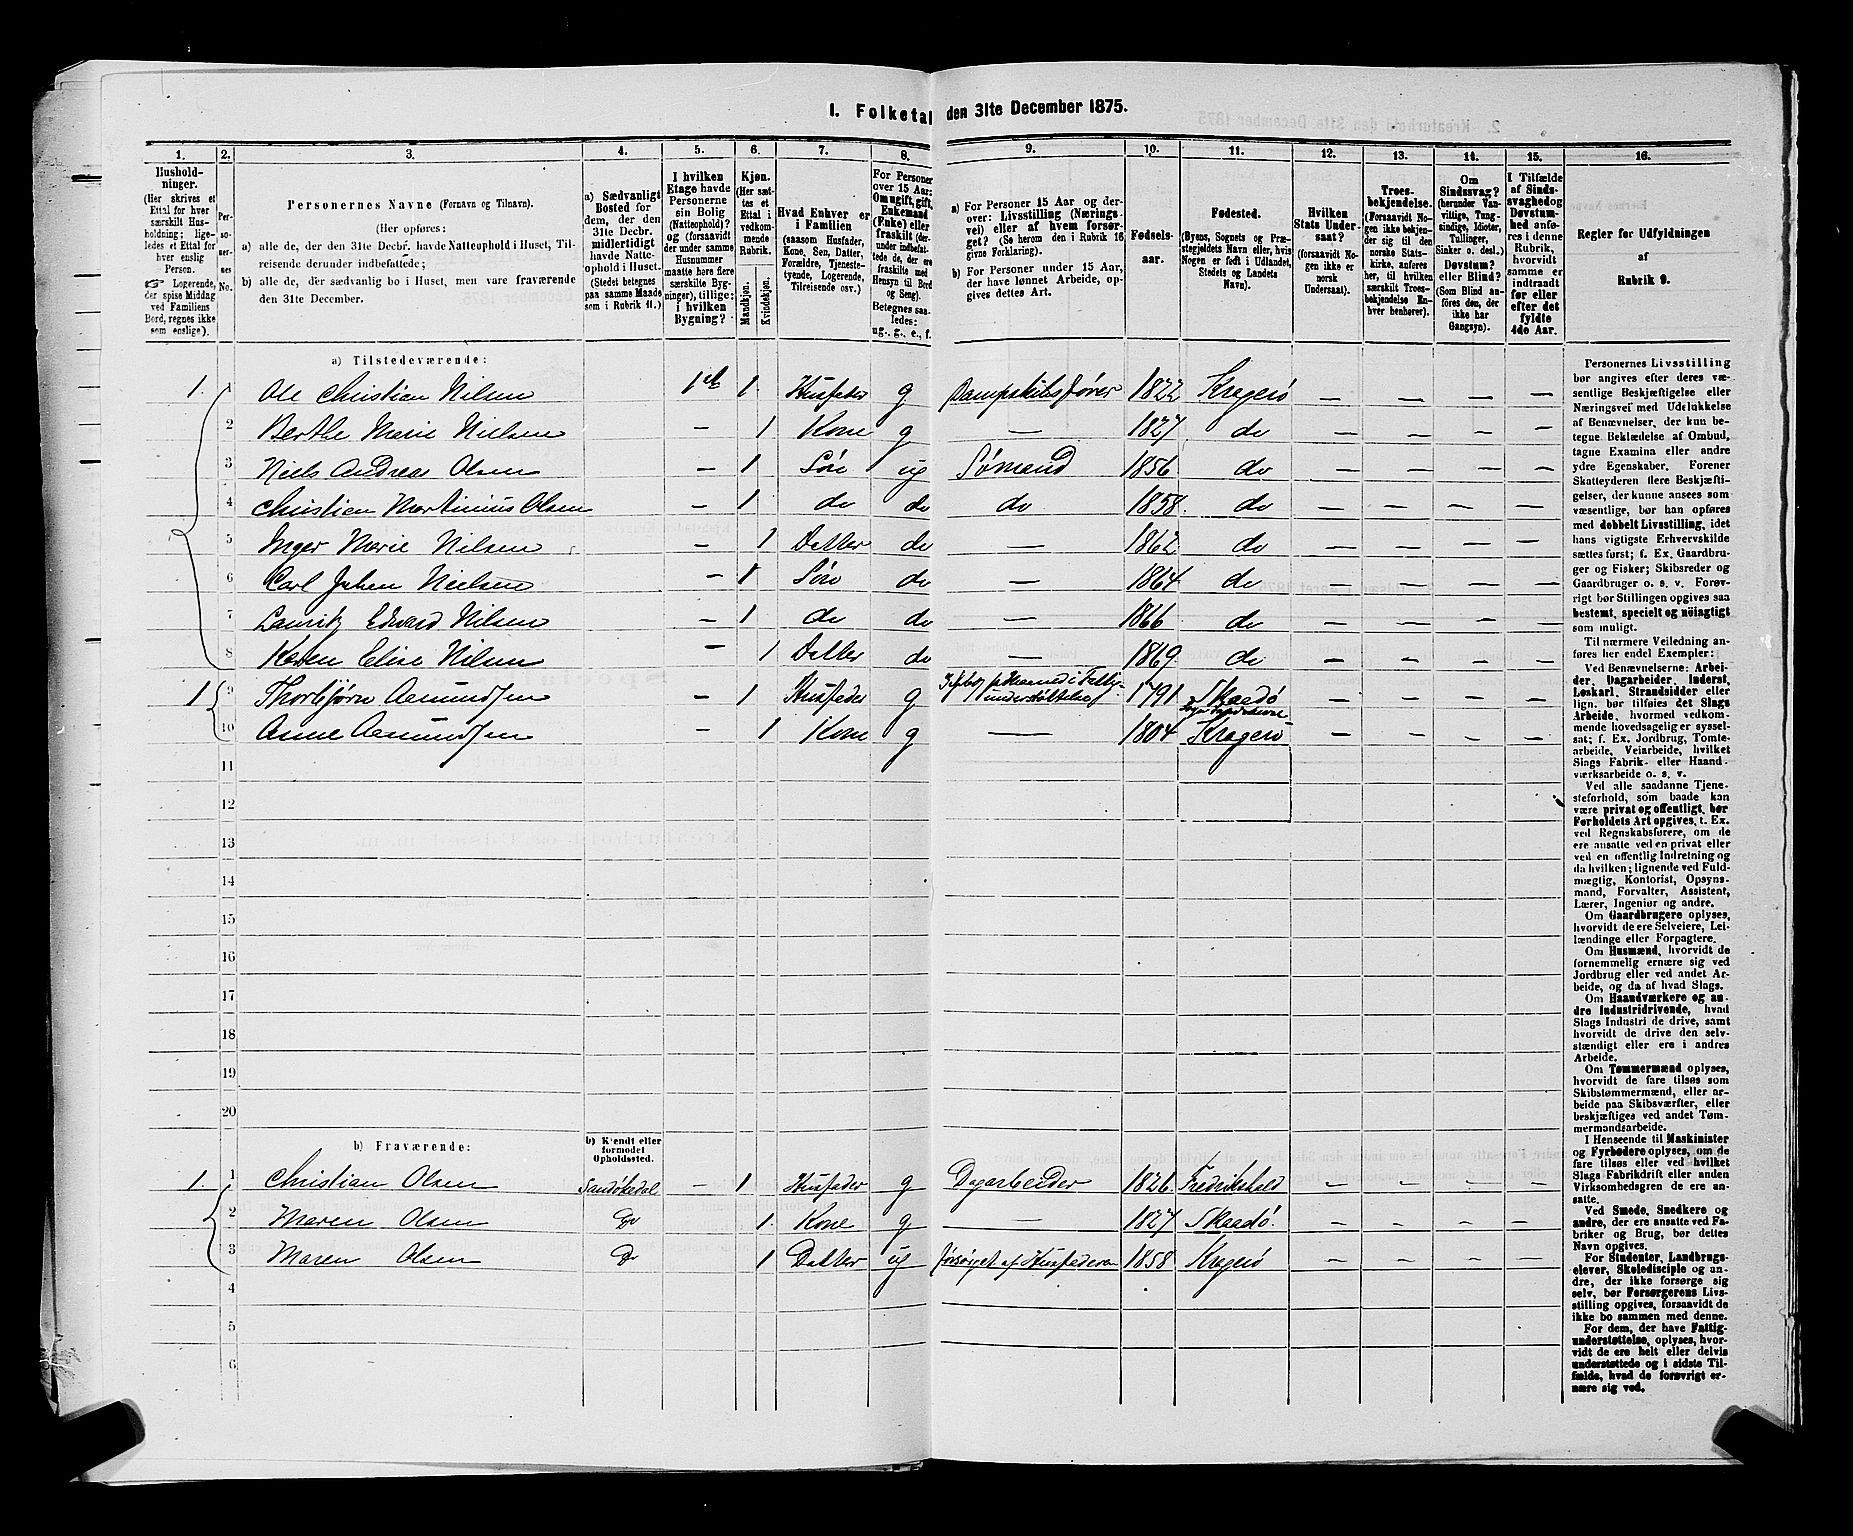 I. Folketal den 31te December 1875.
1. 2. 3. 4. 5. 6. 7. 8. 9. 10. 11. 12. 13. 14. 15. 16.
Hushold-
ninger.
(Her skrives et
Ettal for hver
særskilt Hus-
holdning; lige-
ledes et Ettal for
hver enslig
Person.
☞ Logerende,
der spise Middag
ved Familiens
Bord, regnes ikke
som enslige).
Per-
so-
ner-
nes
No.
Personernes Navne (Fornavn og Tilnavn).
(Her opføres:
a) alle de, der den 31te Decbr. havde Natteophold i Huset, Til-
reisende derunder indbefattede;
b) alle de, der sædvanlig bo i Huset, men vare fraværende
den 31te December.
a) Sædvanligt
Bosted for
dem, der den
31te Decbr.
midlertidigt
havde Natte-
ophold i Huset.
(Stedet betegnes
paa samme Maade
som i Rubrik 11.)
I hvilken
Etage havde
Personerne
sin Bolig
(Natteophold)?
og (forsaavidt
der under samme
Husnummer
maatte høre flere
særskilte Byg-
ninger), tillige:
i hvilken
Bygning?
Kjøn.
(Her sæt-
tes et
Ettal i
vedkom-
mende
Rubrik.
Mandkjøn.
Kvindekjøn.
Hvad Enhver er
i Familien
(saasom Husfader,
Kone, Søn, Datter,
Forældre, Tjeneste-
tyende, Logerende,
Tilreisende osv.)
For Personer
over 15 Aar:
Om ugift, gift,
Enkemand
(Enke) eller
fraskilt (der-
under indbefat-
tede de, der ere
fraskilte med
Hensyn til Bord
og Seng).
Betegnes saa-
ledes:
ug., g., e., f.
a) For Personer over 15 Aar og der-
over: Livsstilling (Nærings-
vei) eller af hvem forsør-
get? (Se herom den i Rubrik 16
givne Forklaring).
b) For Personer under 15 Aar,
der have lønnet Arbeide, op-
gives dettes Art.
Fødsels-
aar.
Fødested.
(Byens, Sognets og Præ-
stegjeldets Navn eller, hvis
Nogen er født i Udlandet,
Stedets og Landets
Navn).
Hvilken
Stats Under-
saat?
(forsaavidt No-
gen ikke er
norsk
Undersaat).
Troes-
bekjendelse.
(Forsaavidt No-
gen ikke bekjen-
der sig til den
norske Stats-
kirke, anføres
her, til hvilken
særskilt Troes-
bekjendelse En-
hver henhører).
Om
Sindssvag?
(herunder Van-
vittige, Tung-
sindige, Idioter,
Tullinger,
Sinker o. desl.)
Døvstum?
eller Blind?
(Som Blind an-
føres den, der
ikke har
Gangsyn).
I Tilfælde
af Sinds-
svaghed og
Døvstum-
hed anfø-
res i denne
Rubrik,
hvorvidt
samme er
indtraadt
før eller
efter det
fyldte
4de Aar.
Regler for Udfyldningen
af
Rubrik 9.
a) Tilstedeværende:
1. 1 Ole Christian Nilsen 1 1. Husfader g Dampskibsfører 1822 Kragerø — — — —
2 Berthe Marie Nielsen — 1 Kone g — 1827 do — — — —
3 Niels Andreas Olsen — 1 Søn ug Sømand 1856 do — — — —
4 Christian Martinius Olsen — 1 do do do 1858 do — — — —
5 Inger Marie Nilsen — 1 Datter do — 1862 do — — — —
6 Carl Johan Nielsen — 1 Søn do — 1864 do — — — —
7 Lauritz Edward Nilsen — 1 do do — 1866 do — — — —
8 Karen Elise Nilsen — 1 Datter do — 1869 do — — — —
1 9 Thorbjørn Aamundsen — 1 Husfader g understøttelse 1791 Skaadø — — — —
10 Anne Aamundsen — 1 Kone g — 1804 Kragerø — — — —
11
12
13
14
15
16
17
18
19
20
b) Fraværende:
b) Kjendt eller
formodet
Opholdssted.
1. 1 Christian Olsen Sandøkedal — 1 Husfader g Dagarbeider 1826 Fredrikshald — — — —
2 Maren Olsen Do 1. Kone g — 1827 Skaadø. — — — —
3 Maren Olsen Do 1 Datter ug forsørget af Husfaderen 1858 Kragerø — — — —
4
5
6
Personernes Livsstilling
bør angives efter deres væ-
sentlige Beskjæftigelse eller
Næringsvei med Udelukkelse
af Benævnelser, der kun be-
tegne Beklædelse af Ombud,
tagne Examina eller andre
ydre Egenskaber. Forener
Skatteyderen flere Beskjæfti-
gelser, der kunne ansees som
væsentlige, bør han opføres
med dobbelt Livsstilling, idet
hans vigtigste Erhvervskilde
sættes først; f. Ex. Gaardbru-
ger og Fisker; Skibsreder og
Gaardbruger o. s. v. Forøv-
rigt bør Stillingen opgives saa
bestemt, specielt og nöiagtigt
som muligt.
Til nærmere Veiledning an-
føres her endel Exempler:
Ved Benævnelserne: Arbei-
der, Dagarbeider, Inderst,
Løskarl, Strandsidder eller
lign. bør tilføies det Slags
Arbeide, hvormed vedkom-
mende hovedsagelig er syssel-
sat; f. Ex. Jordbrug, Tomte-
arbeide, Veiarbeide, hvilket
Slags Fabrik- eller Haand-
værksarbeide o. s. v.
Ved alle saadanne Tjene-
steforhold, som baade kan
være privat og offentligt, bør
Forholdets Art opgives, t. Ex.
ved Regnskabsførere, om de
ere ansatte ved en privat eller
ved en offentlig Indretning og
da hvilken; lignende ved Fuld-
mægtig, Kontorist, Opsyns-
mand, Forvalter, Assistent,
Lærer, Ingeniør og andre.
Om Gaardbrugere oplyses,
hvorvidt de ere Selveiere, Lei-
lændinge eller Forpagtere.
Om Husmænd, hvorvidt de
fornemmelig ernære sig ved
Jordbrug eller ved andet Ar-
beide, og da af hvad Slags.
Om Haandværkere og an-
dre Industridrivende, hvad
Slags Industri de drive, samt
hvorvidt de drive den selv-
stændigt eller ere i andres
Arbeide.
Om Tømmermænd oplyses,
hvorvidt de fare tilsøs som
Skibstømmermænd, eller ar-
beide paa Skibsværfter, eller
beskjæftiges ved andet Tøm-
mermandsarbeide.
I Henseende til Maskinister
og Fyrbødere oplyses, om de
fare tilsøs eller ved hvilket
Slags Fabrikdrift eller anden
Virksomhedsgren de ere an-
satte.
Ved Smede, Snedkere og
andre, der ere ansatte ved Fa-
briker og Brug, bør dettes
Navn opgives.
For Studenter, Landbrugs-
elever, Skoledisciple og an-
dre, der ikke forsørge sig
selv, bør Forsørgerens Livs-
stilling opgives, forsaavidt de
ikke bo sammen med denne.
For dem, der have Fattig-
understøttelse, oplyses, hvor-
vidt de ere helt eller delvis
understøttede og i sidste Til-
fælde, hvad de forøvrigt er-
nære sig ved.